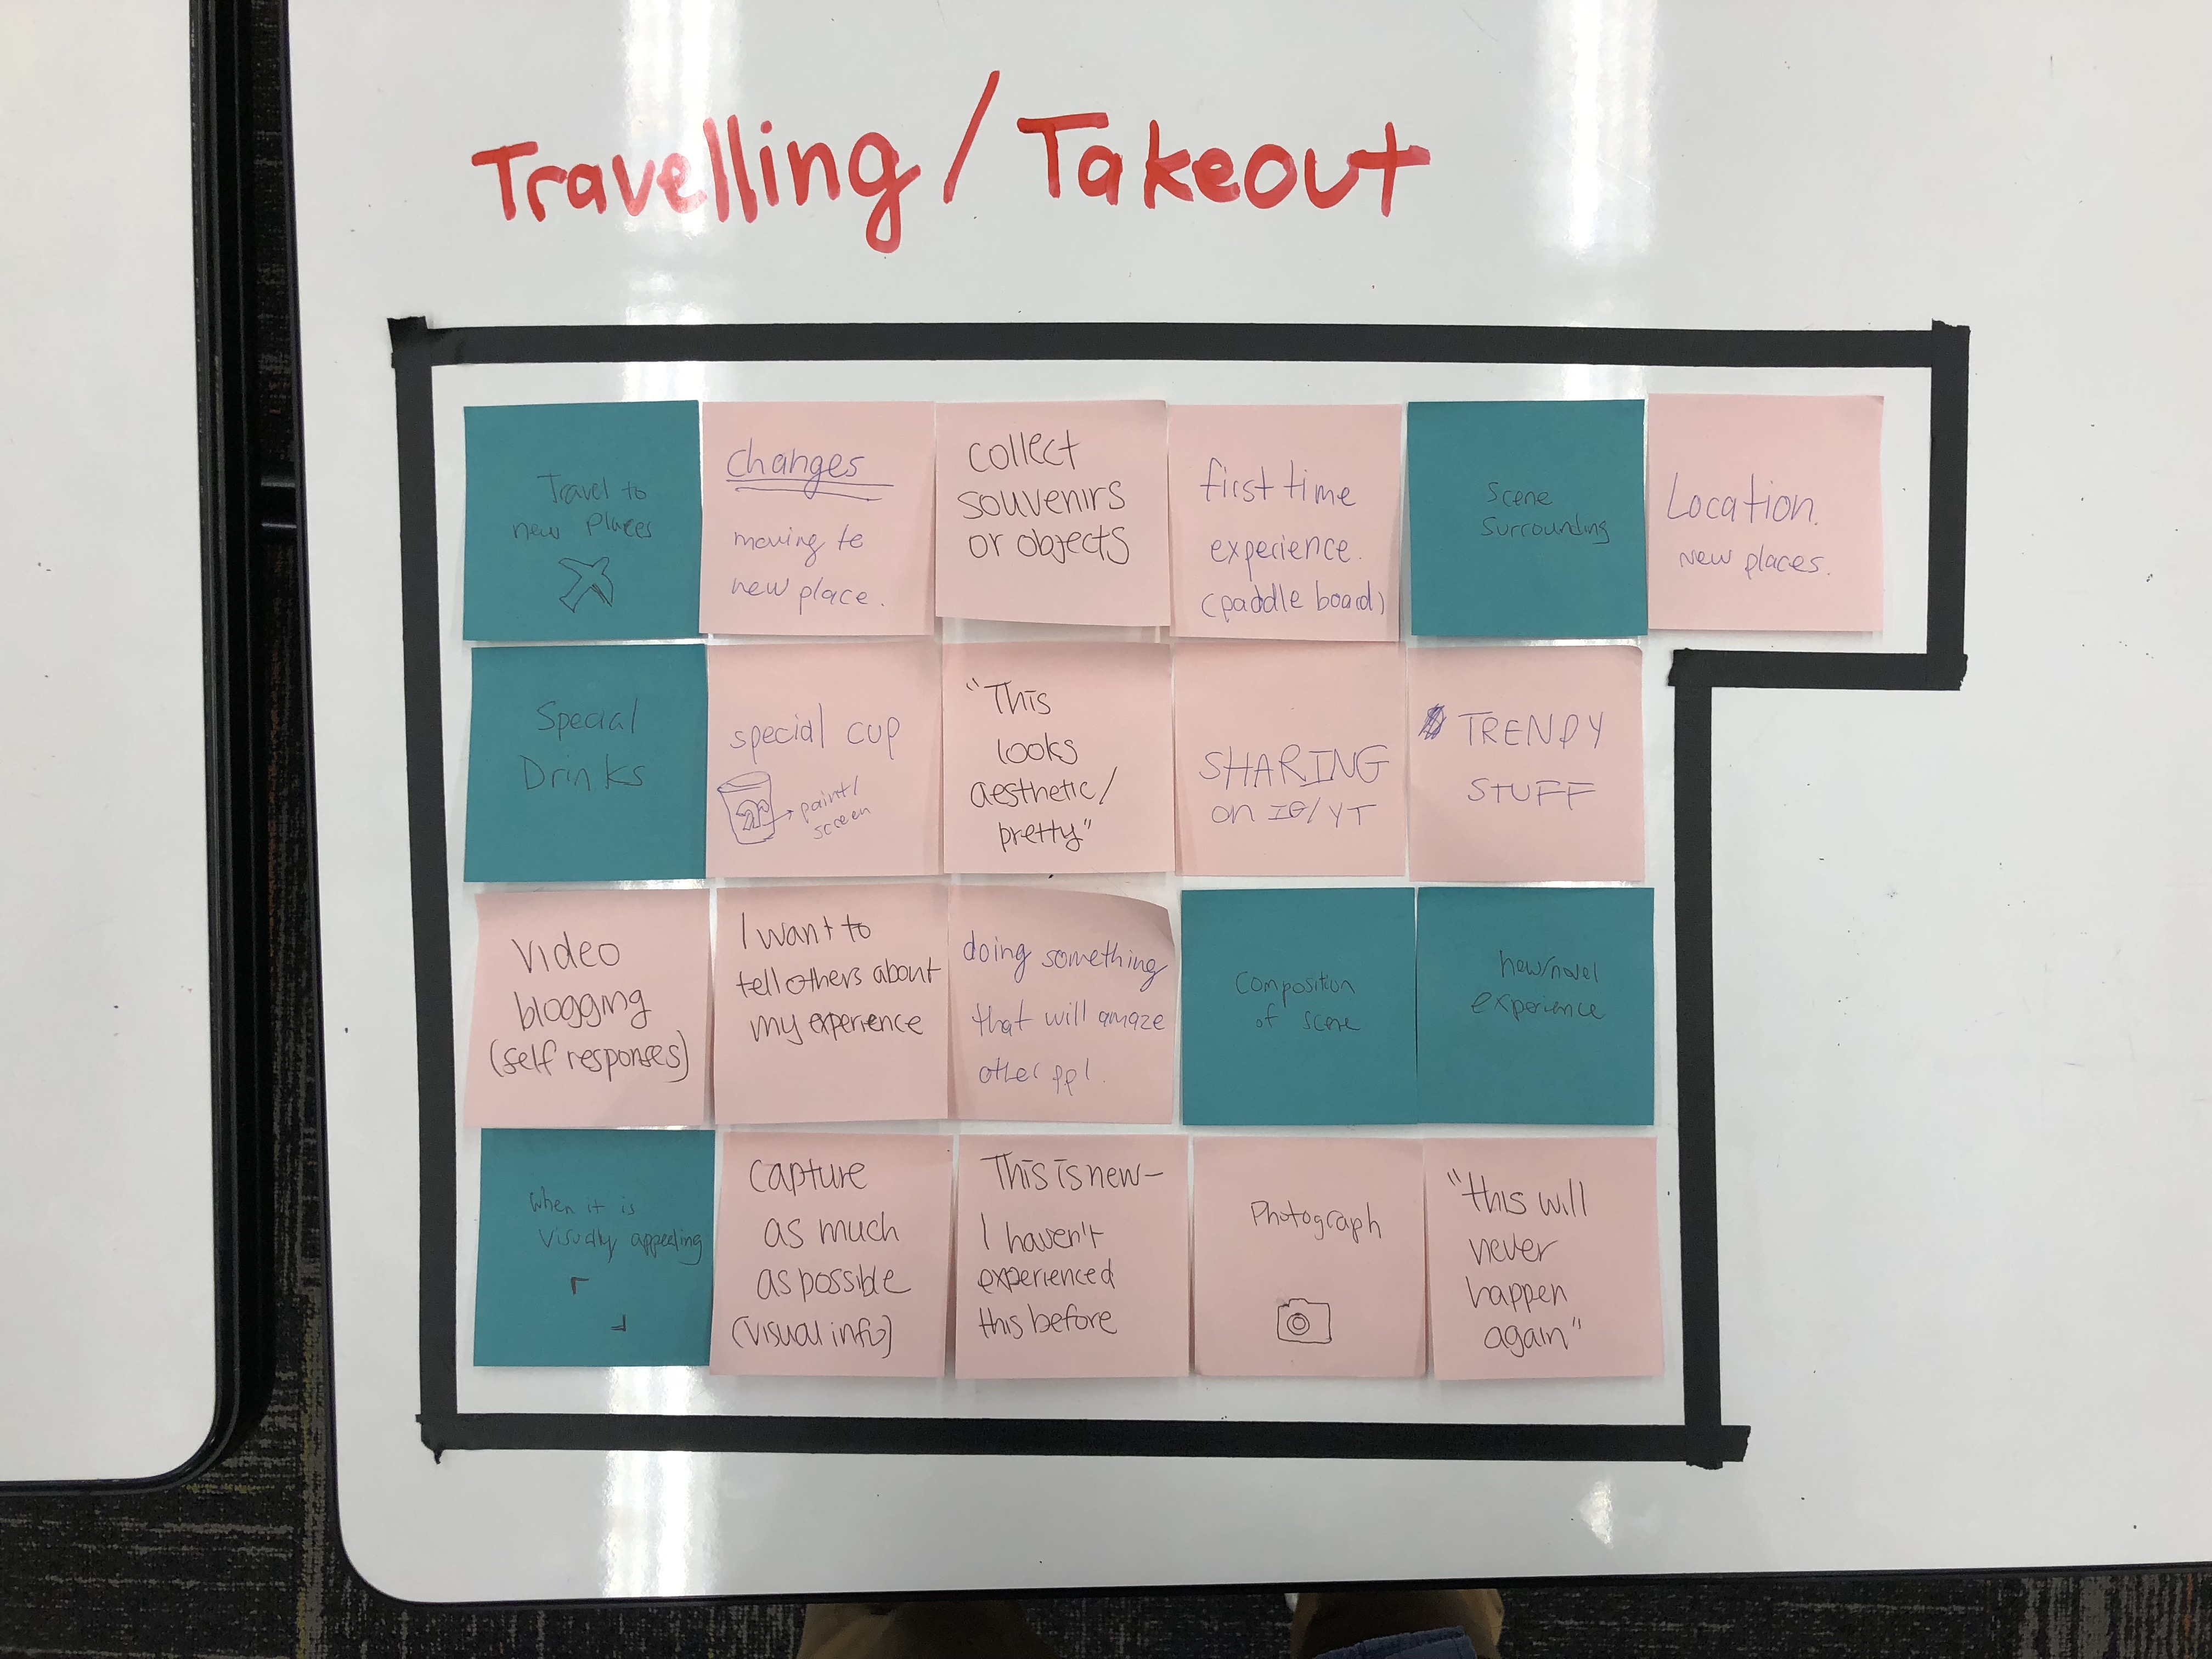 Travelling / Takeout
Travel to
new places
changes
moving to
new place.
collect
souvenirs
or objects
first time
experience.
(paddle board)
Scene
Surrounding
Location.
New places.
Special
Drinks
special cup
paint/
screen
"This
looks
aesthetic/
pretty"
SHARING
on IG/YT
TRENDY
STUFF
Video
blogging
(self responses)
I want to
tell others about
my experience
doing something
that will amaze
other ppl.
Composition
of scene
new/novel
experience
When it is
visually appealing
Capture
as much
as possible
(visual info)
This is new-
I haven't
experienced
this before
Photograph
"this will
never
happen
again"